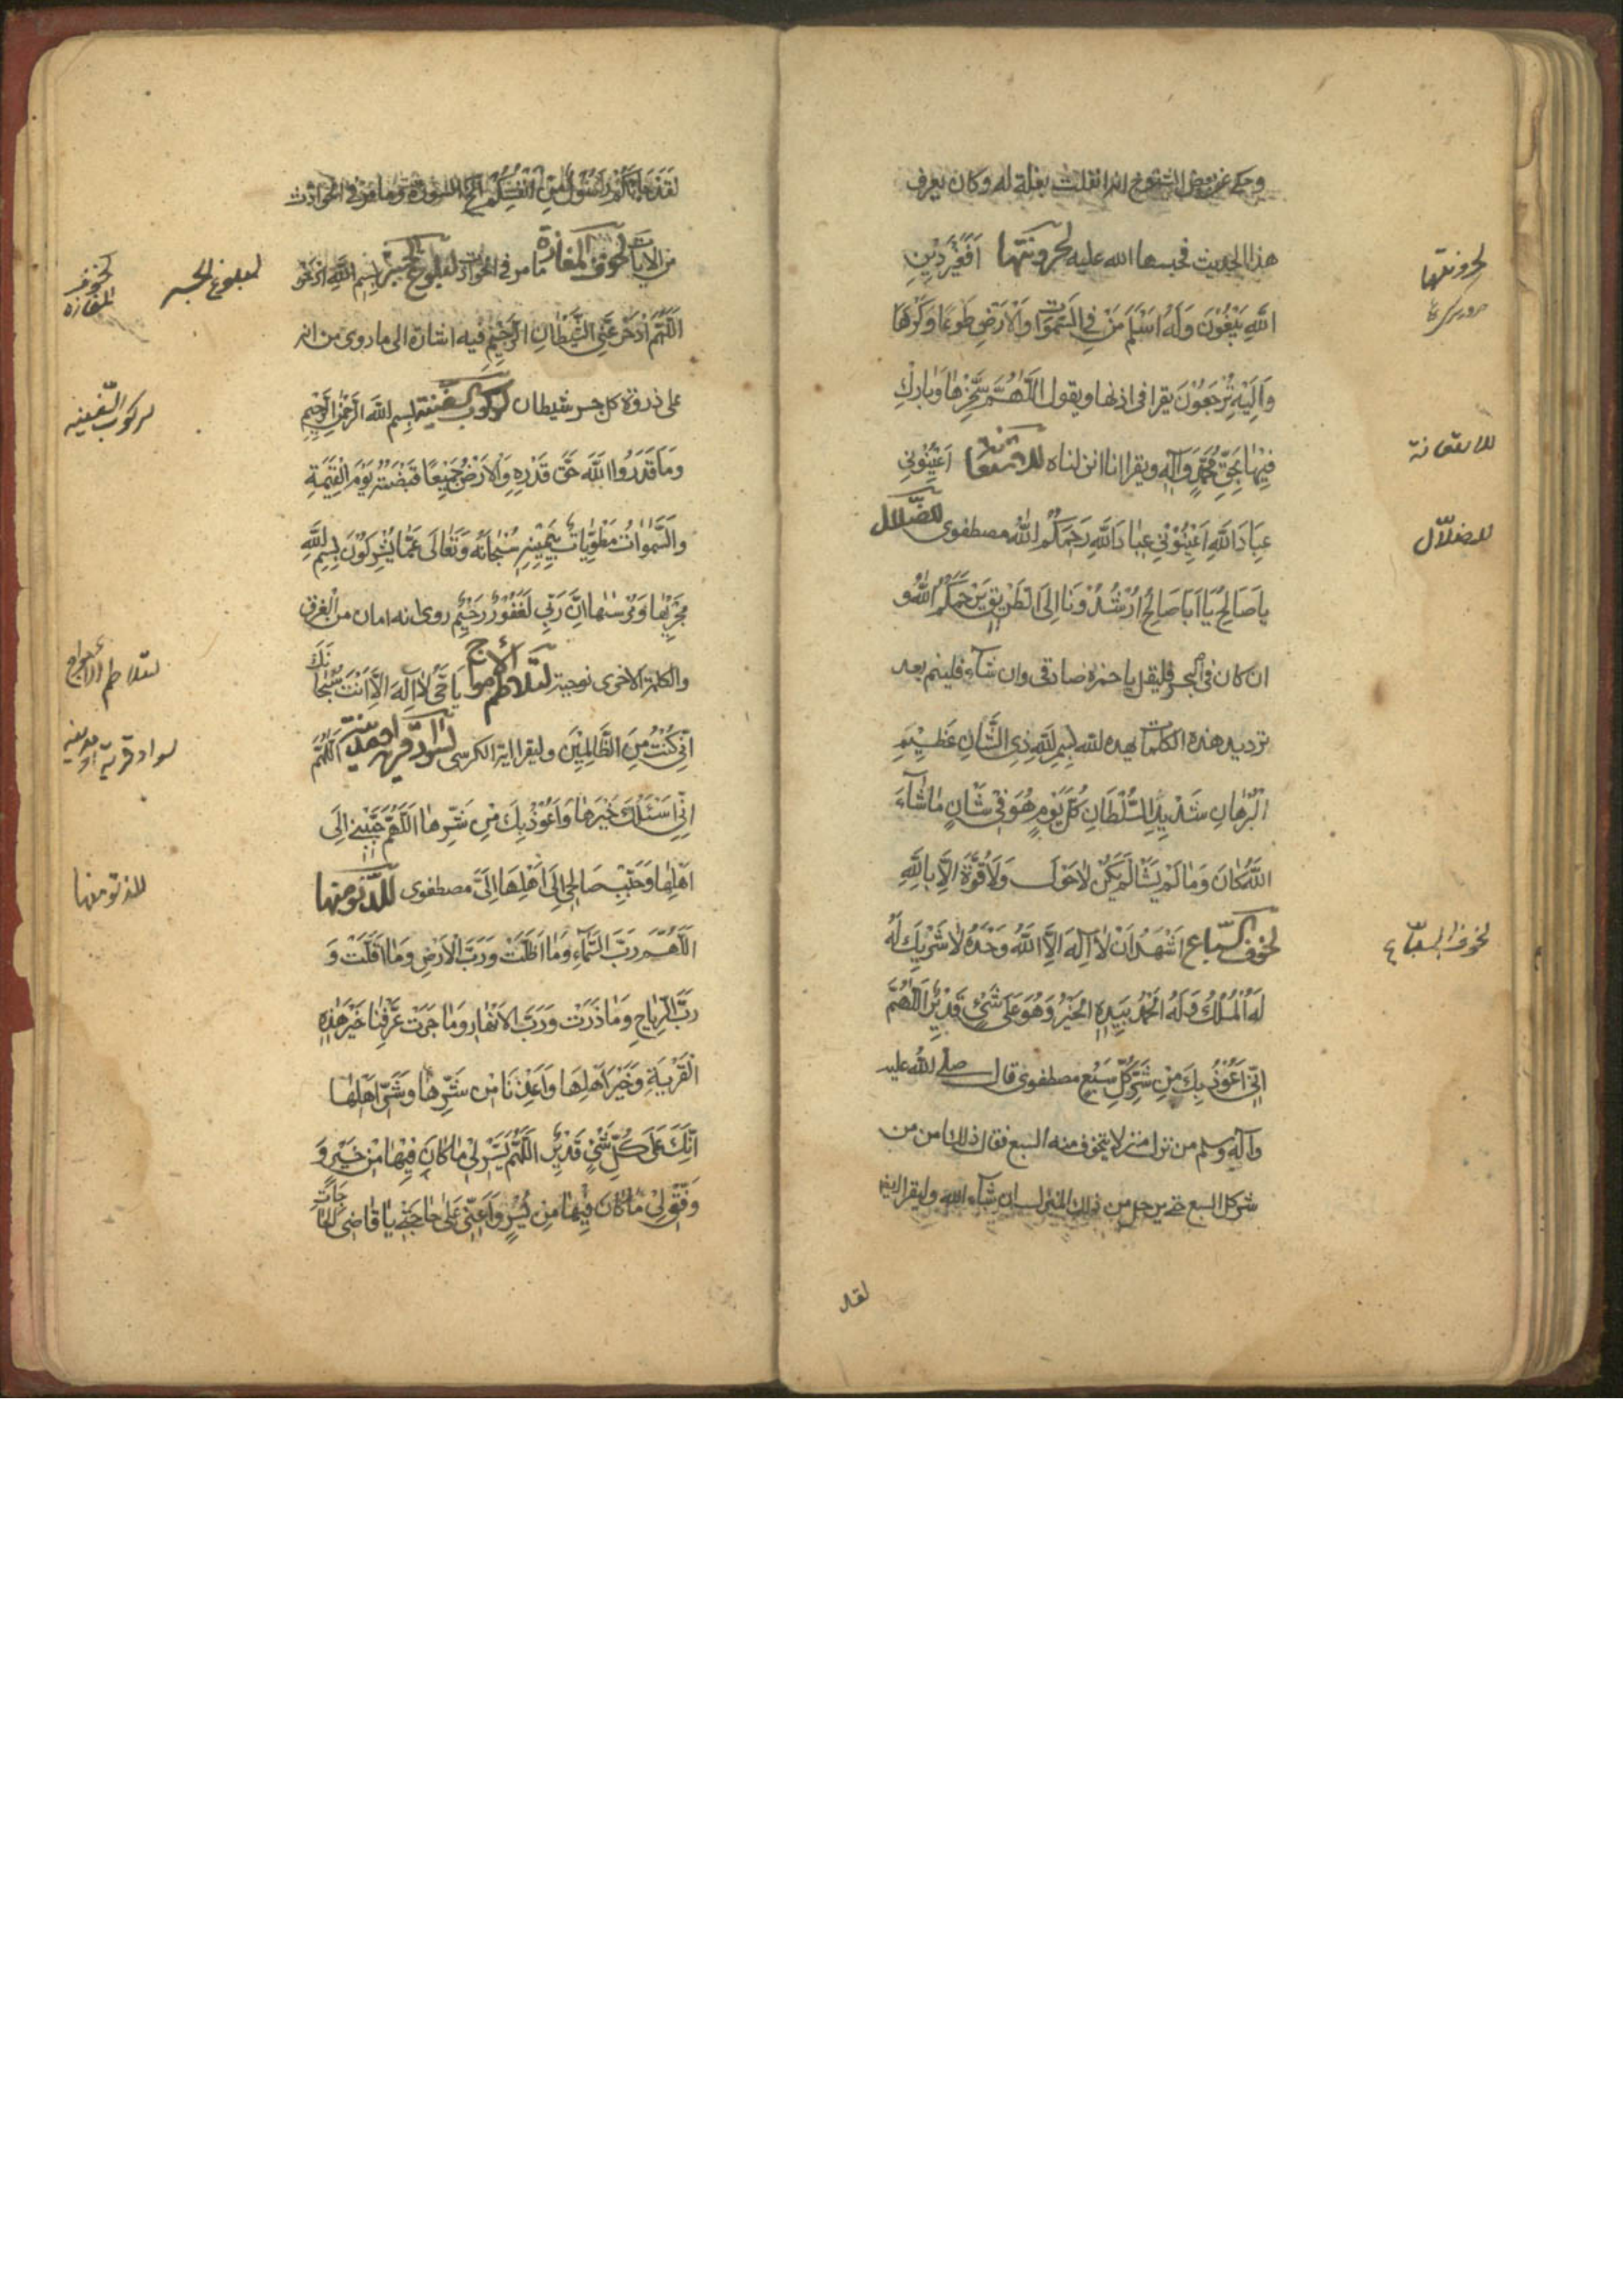 وحكى عن بعض الشيوخ انه انفلتت بغلة له وكان يعرف
هذا الحديث فحبسها الله عليه لحرونتها اَفَغَيْرَ دِيْنِ
اللّٰهِ يَبْغُوْنَ وَلَهٗ اَسْلَمَ مَنْ فِي السَّمٰوَاتِ وَالْاَرْضِ طَوْعًا وَكَرْهًا
وَاِلَيْهِ تُرْجَعُوْنَ يقرا في اذنها ويقول اَللّٰهُمَّ سَخِّرْهَا وَبَارِكْ
فِيْهَا بِحَقِّ مُحَمَّدٍ وَآلِهٖ ويقرا انا انزلناه للاستعانة اَعِيْنُوْنِي
عِبَادَ اللّٰهِ اَعِيْنُوْنِي عِبَادَ اللّٰهِ رَحِمَكُمُ اللّٰهُ مصطفوى للضلال
يا صَالِحُ يَا اَبَا صَالِحُ اَرْشِدُوْنَا اِلَى الطَّرِيْقِ يَرْحَمُكُمُ اللّٰهُ و
ان كان في البحر فليقل يا حمزة صادقى وان شآء فلينم بعد
ترديد هذه الكلمات يهده الله بِسْمِ اللّٰهِ ذِى الشَّانِ عَظِيْمِ
الْبُرْهَانِ شَدِيْدِ السُّلْطَانِ كُلَّ يَوْمٍ هُوَ فِيْ شَاْنٍ مَا شَآءَ
اللّٰهُ كَانَ وَمَا لَمْ يَشَا لَمْ يَكُنْ لَا حَوْلَ وَلَا قُوَّةَ اِلَّا بِاللّٰهِ
لخوف السباع اَشْهَدُ اَنْ لَا اِلٰهَ اِلَّا اللّٰهُ وَحْدَهٗ لَا شَرِيْكَ لَهٗ
لَهُ الْمُلْكُ وَلَهُ الْحَمْدُ بِيَدِهِ الْخَيْرُ وَهُوَ عَلٰى شَيْءٍ قَدِيْرٌ اَللّٰهُمَّ
اِنِّيْ اَعُوْذُ بِكَ مِنْ شَرِّ كُلِّ سَبُعٍ مصطفوى قال صلى الله عليه
وآله وسلم من نزل منزلا يتخوف منه السبع فقال ذلك امن من
شر كل السبع حتى يرحل من ذلك المنزل ان شآء الله وليقرا ايضا
لقد
لحرونتها
للاستعانة
للضلال
لخوف السباع
لَقَدْ جَاءَكُمْ رَسُوْلٌ مِنْ اَنْفُسِكُمْ الخ السورة وما مر في الحوادث
من الايات لخوف المفازة ما مر في الحوادث لبلوغ الجسر بِسْمِ اللّٰهِ
اَللّٰهُمَّ ادْحَرْ عَنِّى الشَّيْطَانَ الرَّجِيْمَ فيه اشارة الى ما روى من انه
على ذروة كل جسر شيطان لركوب السفينة بِسْمِ اللّٰهِ الرَّحْمٰنِ الرَّحِيْمِ
وَمَا قَدَرُوا اللّٰهَ حَقَّ قَدْرِهٖ وَالْاَرْضُ جَمِيْعًا قَبْضَتُهٗ يَوْمَ الْقِيٰمَةِ
وَالسَّمٰوَاتُ مَطْوِيَّاتٌ بِيَمِيْنِهٖ سُبْحَانَهٗ وَتَعَالٰى عَمَّا يُشْرِكُوْنَ بِسْمِ اللّٰهِ
مَجْرٰيهَا وَمُرْسٰهَا اِنَّ رَبِّي لَغَفُوْرٌ رَحِيْمٌ روى انه امان من الغرق
والكلمة الاخرى نوحية لتلاطم الامواج يَا حَيُّ لَا اِلٰهَ اِلَّا اَنْتَ سُبْحَانَكَ
اِنِّيْ كُنْتُ مِنَ الظَّالِمِيْنَ وليقرا اية الكرسى لسواد قرية او مدينة اَللّٰهُمَّ
اِنِّيْ اَسْئَلُكَ خَيْرَهَا وَاَعُوْذُ بِكَ مِنْ شَرِّهَا اَللّٰهُمَّ حَبِّبْنِيْ اِلٰى
اَهْلِهَا وَحَبِّبْ صَالِحِى اَهْلِهَا اِلَيَّ مصطفوى للدنو منها
اَللّٰهُمَّ رَبَّ السَّمَآءِ وَمَا اَظَلَّتْ وَرَبَّ الْاَرْضِ وَمَا اَقَلَّتْ وَ
رَبَّ الرِّيَاحِ وَمَا ذَرَتْ وَرَبَّ الْاَنْهَارِ وَمَا جَرَتْ عَرِّفْنَا خَيْرَ هٰذِهِ
الْقَرْيَةِ وَخَيْرَ اَهْلِهَا وَاَعِذْنَا مِنْ شَرِّهَا وَشَرِّ اَهْلِهَا
اِنَّكَ عَلٰى كُلِّ شَيْءٍ قَدِيْرٌ اَللّٰهُمَّ يَسِّرْ لِيْ مَا كَانَ فِيْهَا مِنْ خَيْرٍ وَ
وَفِّقْ لِيْ مَا كَانَ فِيْهَا مِنْ يُسْرٍ وَاَعِنِّيْ عَلٰى حَاجَتِيْ يَا قَاضِيَ الْحَاجَاتِ
لبلوغ الجسر
لخوف المفازه
لركوب السفينه
لتلاطم الامواج
لسواد قرية او مدينه
للدنو منها